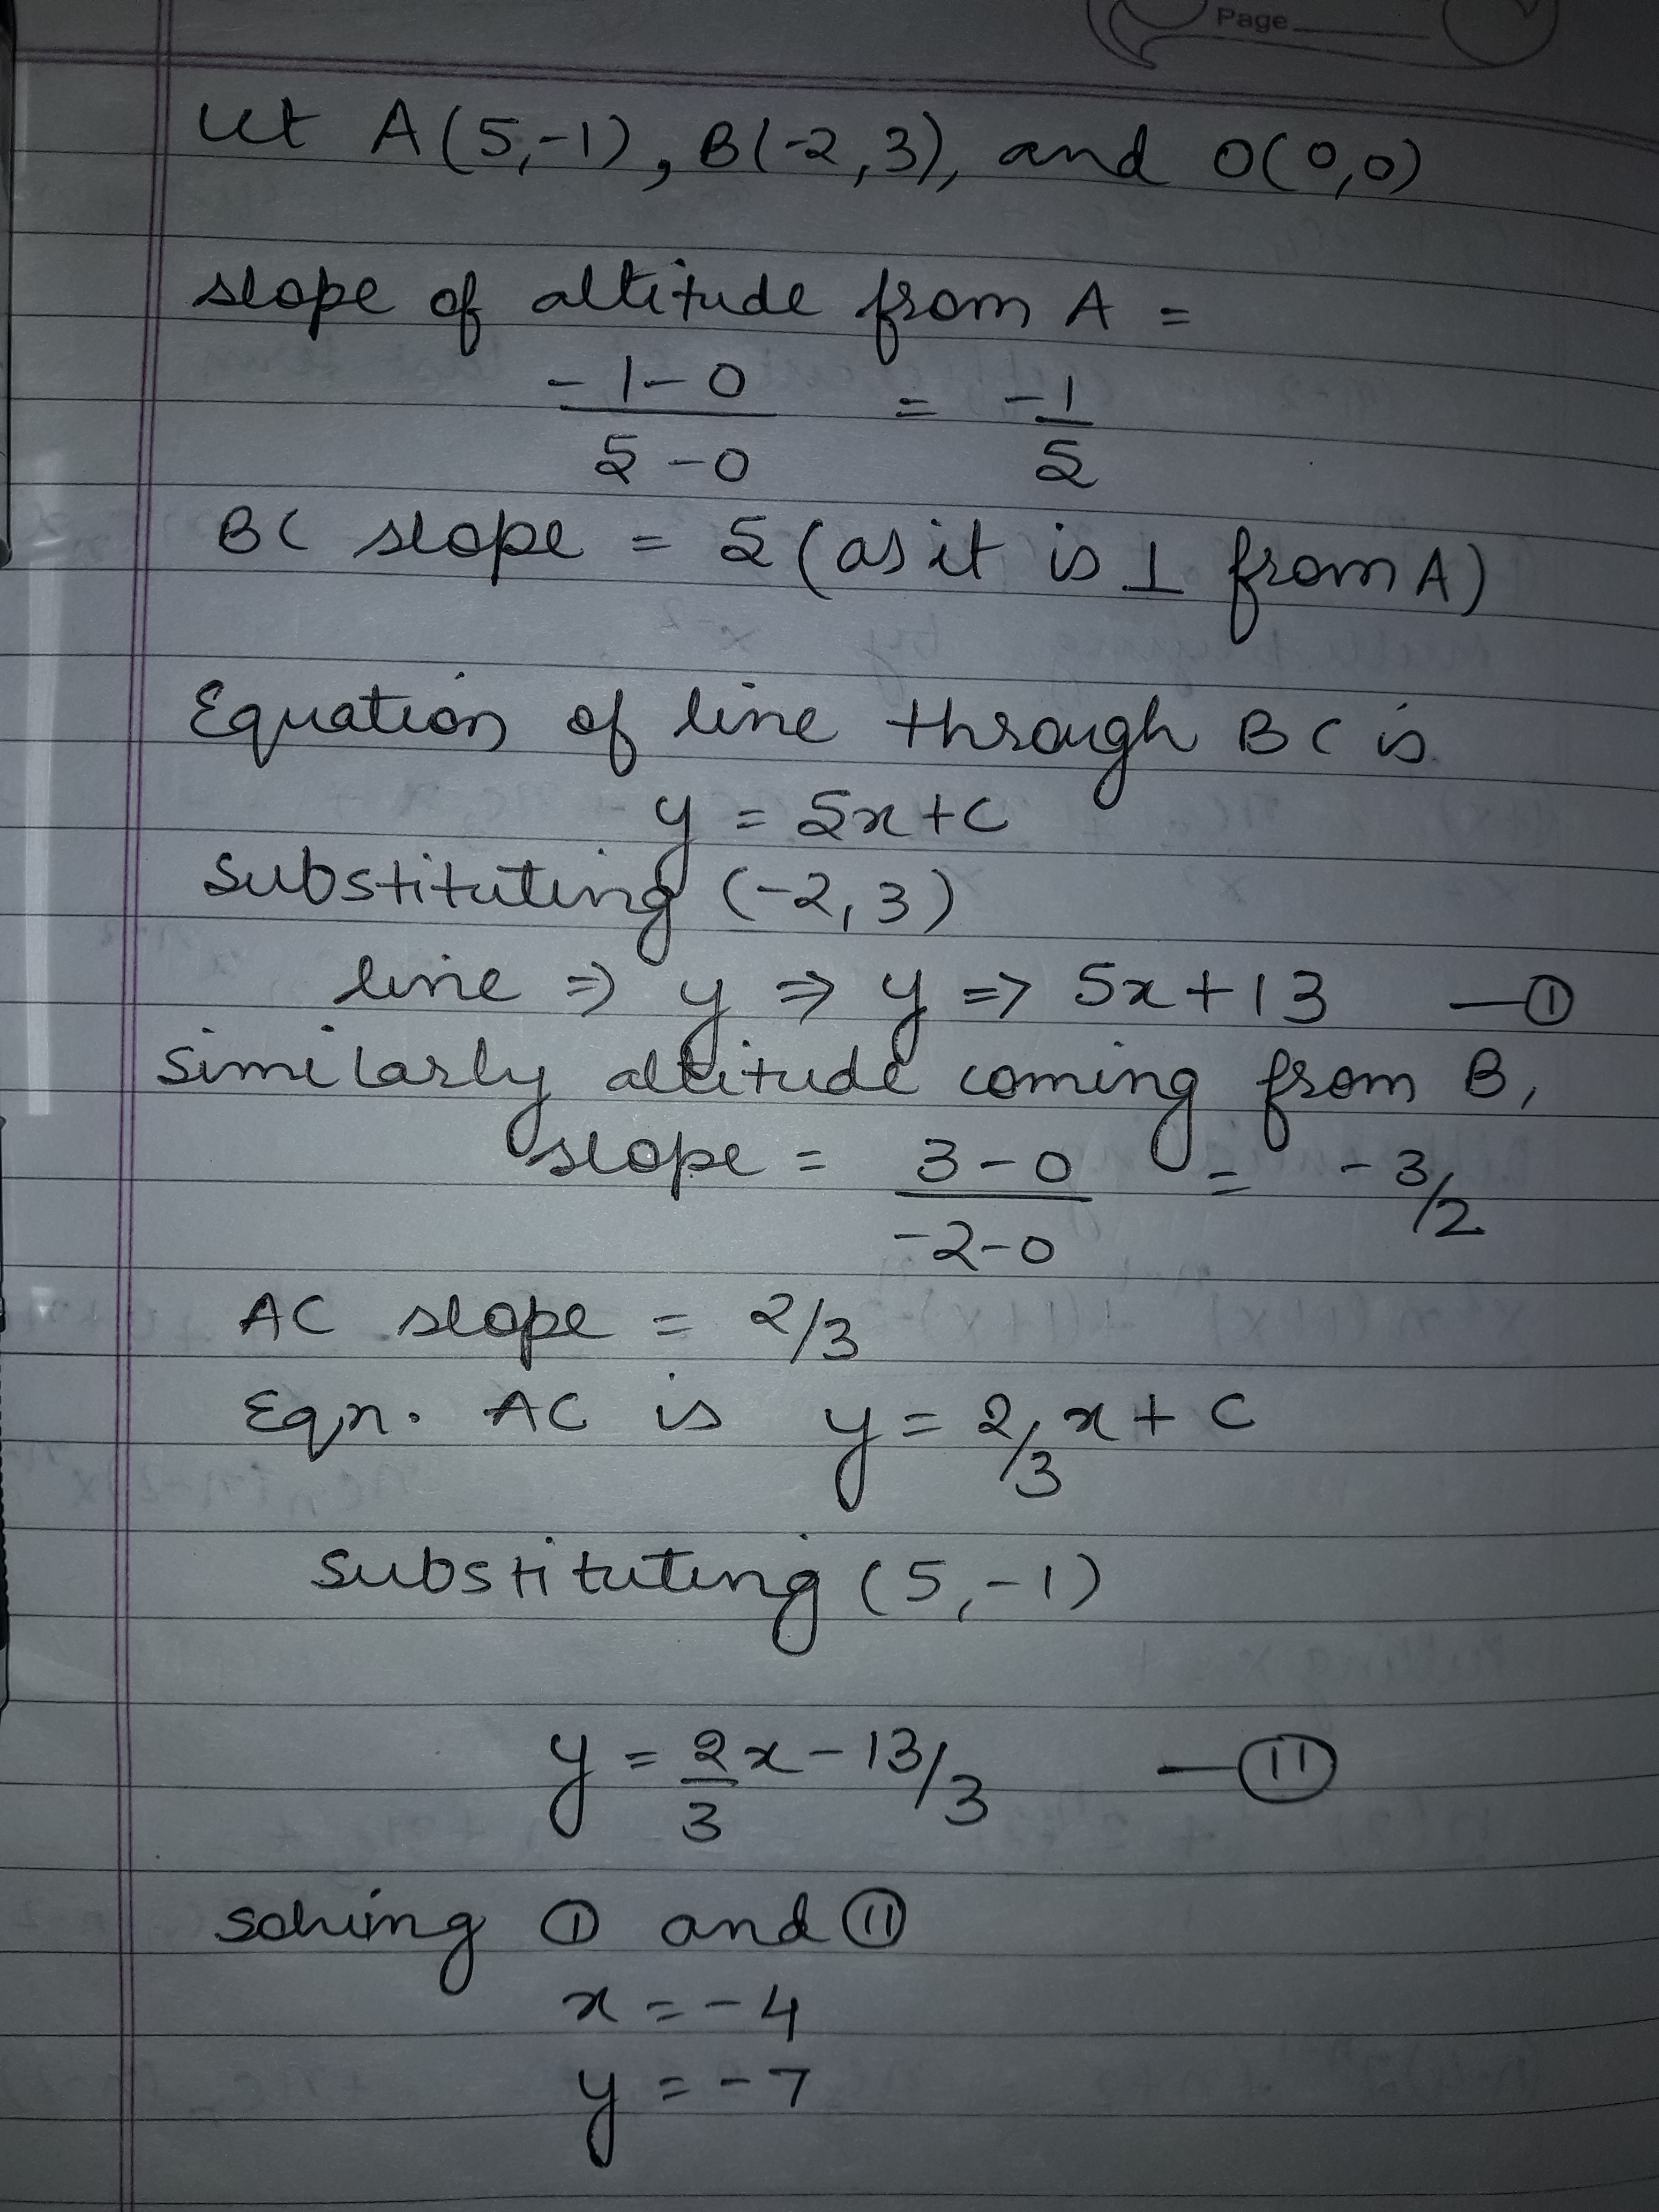 Page
Let A(5,-1), B(-2,3), and O(0,0)
slope of altitude from A =
-1-0/5-0 = -1/5
BC slope = 5 (as it is ⊥ from A)
Equation of line through BC is
y = 5x+C
Substituting (-2,3)
line ⇒ y ⇒ y ⇒ 5x+13 —①
Similarly altitude coming from B,
slope = 3-0/-2-0 = -3/2
AC slope = 2/3
Eqn. AC is y = 2/3 x + C
Substituting (5,-1)
y = 2/3 x - 13/3 —⑪
solving ① and ⑪
x = -4
y = -7